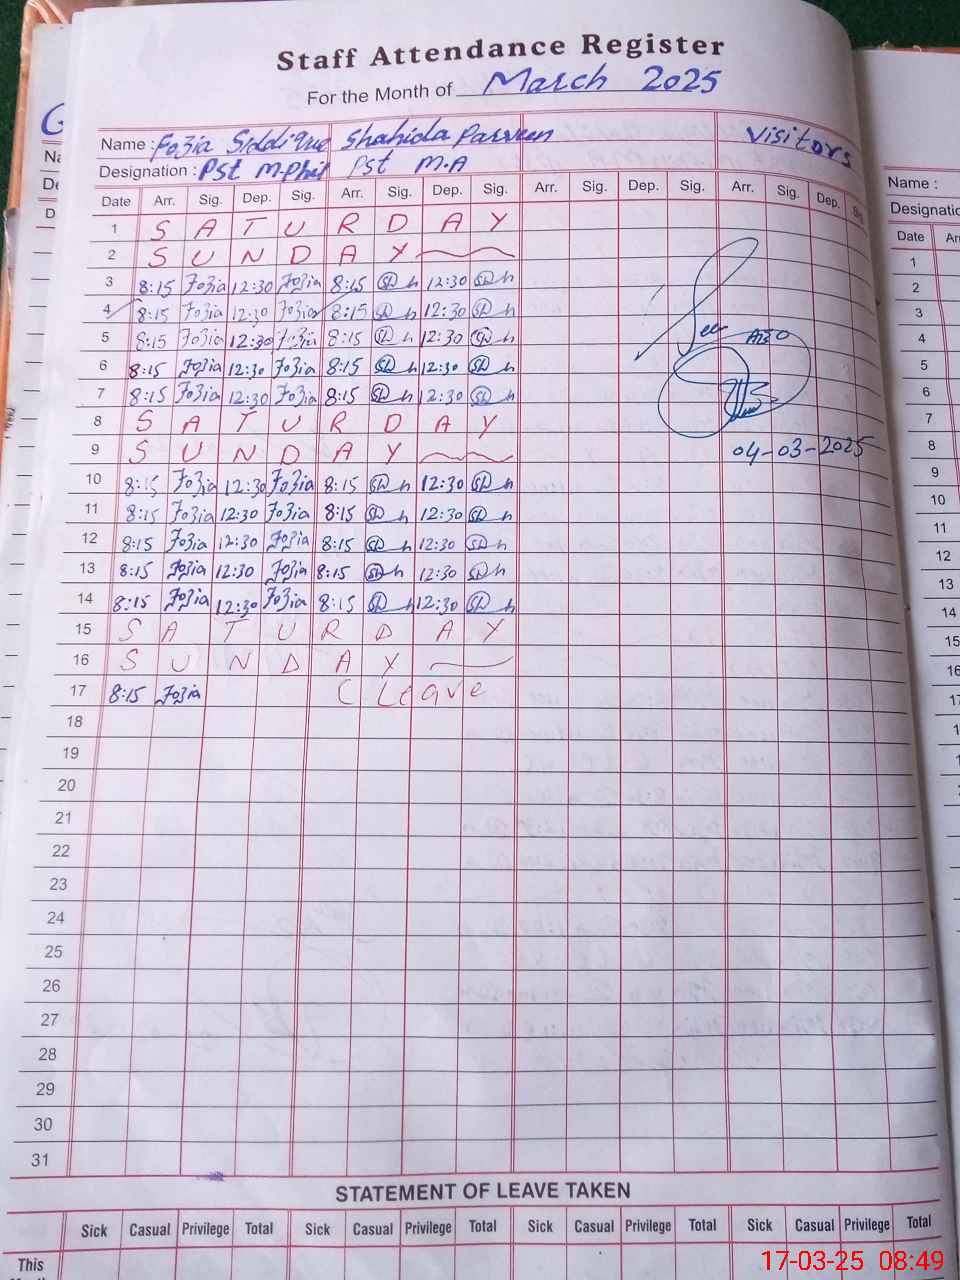 Staff Attendance Register
For the Month of March 2025
Name : Fozia Siddique Shahida Parveen Visitors
Designation : PST M.Phil PST M.A
Date Arr. Sig. Dep. Sig. Arr. Sig. Dep. Sig. Arr. Sig. Dep. Sig. Arr. Sig. Dep. Sig.
1 S A T U R D A Y
2 S U N D A Y
3 8:15 Fozia 12:30 Fozia 8:15 12:30
4 8:15 Fozia 12:30 Fozia 8:15 12:30
5 8:15 Fozia 12:30 Fozia 8:15 12:30
6 8:15 Fozia 12:30 Fozia 8:15 12:30
7 8:15 Fozia 12:30 Fozia 8:15 12:30
8 S A T U R D A Y
9 S U N D A Y
10 8:15 Fozia 12:30 Fozia 8:15 12:30
11 8:15 Fozia 12:30 Fozia 8:15 12:30
12 8:15 Fozia 12:30 Fozia 8:15 12:30
13 8:15 Fozia 12:30 Fozia 8:15 12:30
14 8:15 Fozia 12:30 Fozia 8:15 12:30
15 S A T U R D A Y
16 S U N D A Y
17 8:15 Fozia C Leave
18
19
20
21
22
23
24
25
26
27
28
29
30
31
See
04-03-2025
STATEMENT OF LEAVE TAKEN
Sick Casual Privilege Total Sick Casual Privilege Total Sick Casual Privilege Total Sick Casual Privilege Total
This
17-03-25 08:49
Name :
Date
1
2
3
4
5
6
7
8
9
10
11
12
13
14
15
16